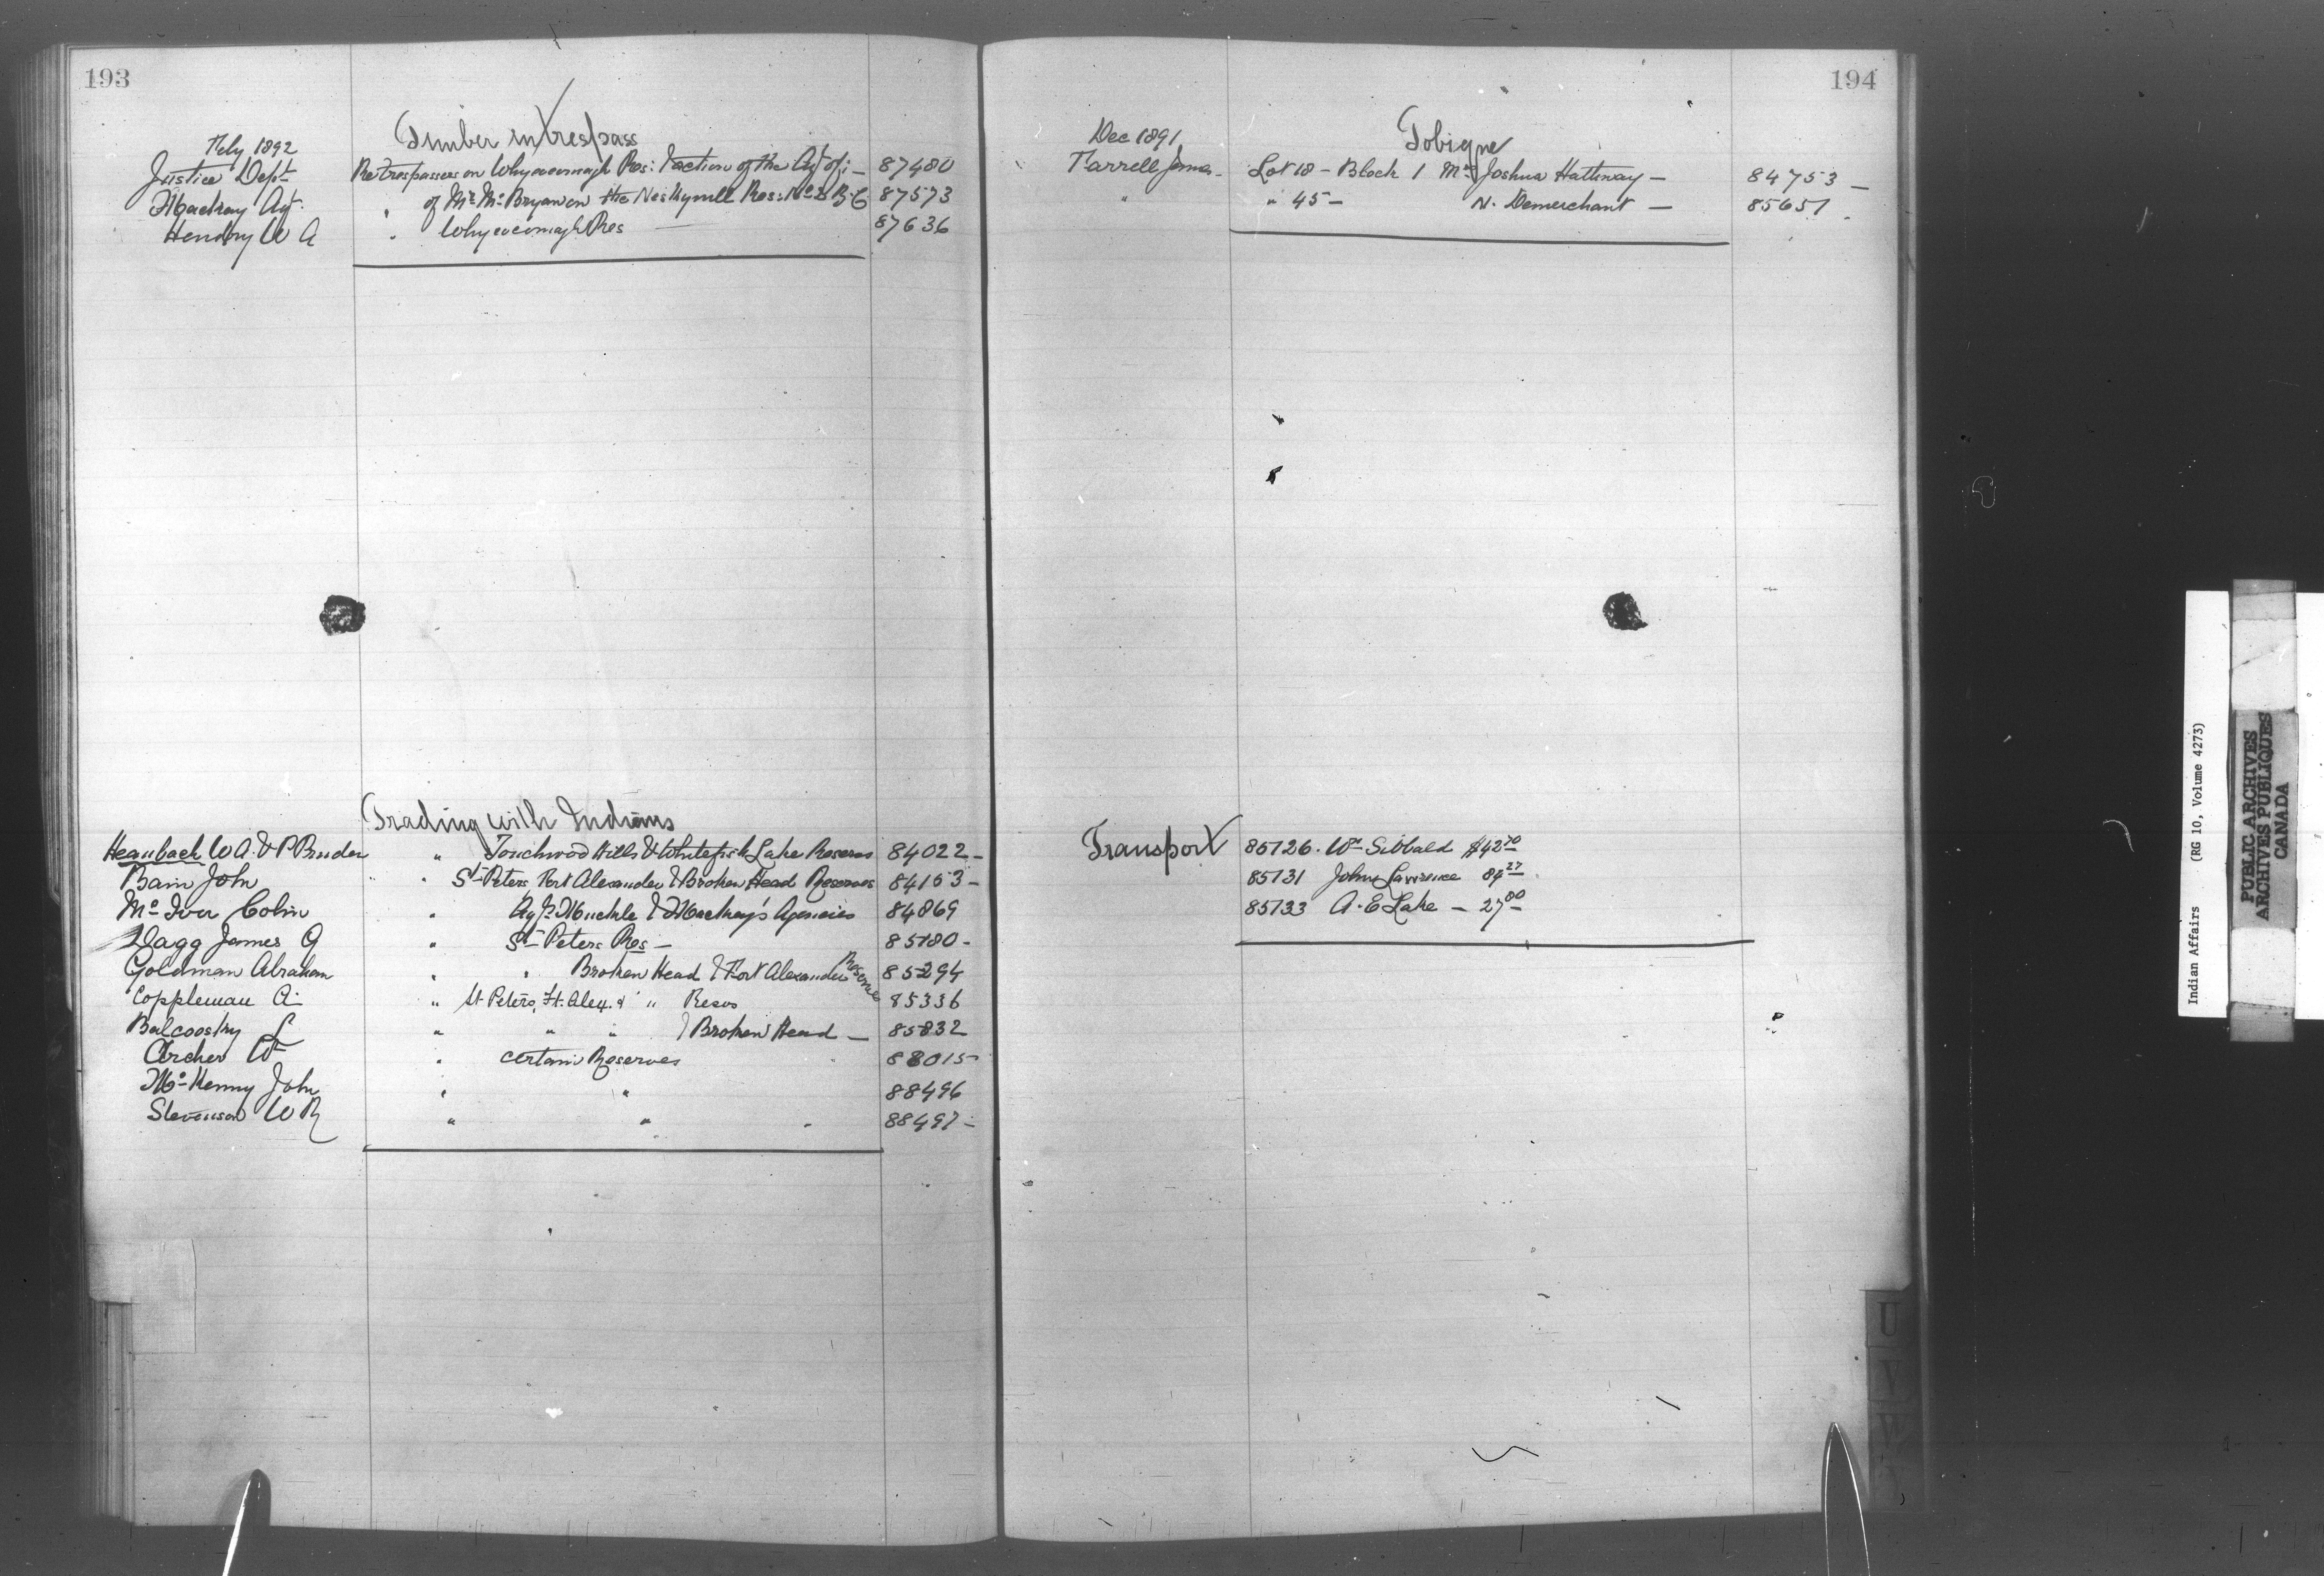 193
Timber in trespass
Feby 1892
Justice Dept Re trespassers on Whycocomagh Res: & action of the Agt of: — 87480
Mackay Agt. " of Mr McBryan on the Neskynell Res: No 2 B.C 87573
Hendry W A " Whycocomagh Res — 87636
Trading with Indians
Heaubach W A & P Bruder " Touchwood Hills & Whitefish Lake Reserves 84022 —
Bain John " " St Peters, Fort Alexander & Broken Head Reserves 84153 —
McIver Colin " Agts Muckle & Mackay's Agencies 84869
Dagg James G " St Peters Res — 85180 -
Goldman Abraham " " Broken Head & Fort Alexander Reserves 85294
Coppleman A " St Peters, Ft. Alex. & " Resvs 85336
Balcoosky L " " " & Broken Head — 85832
Archer Wm " certain Reserves 88015
McKenny John " " 88496
Stevenson W R " " " 88497 -
194
Tobique
Dec 1891
Farrell James - Lot 18 - Block 1 Mrs Joshua Hathway — 84753 —
" " 45 — N. Demerchant — 85651
Transport 85126. Wm Sibbald $42 70
85131 John Lawrence 84 27
85133 A. E Lake — 27 00
U
V
W
Indian Affairs (RG 10, Volume 4273)
PUBLIC ARCHIVES
ARCHIVES PUBLIQUES
CANADA